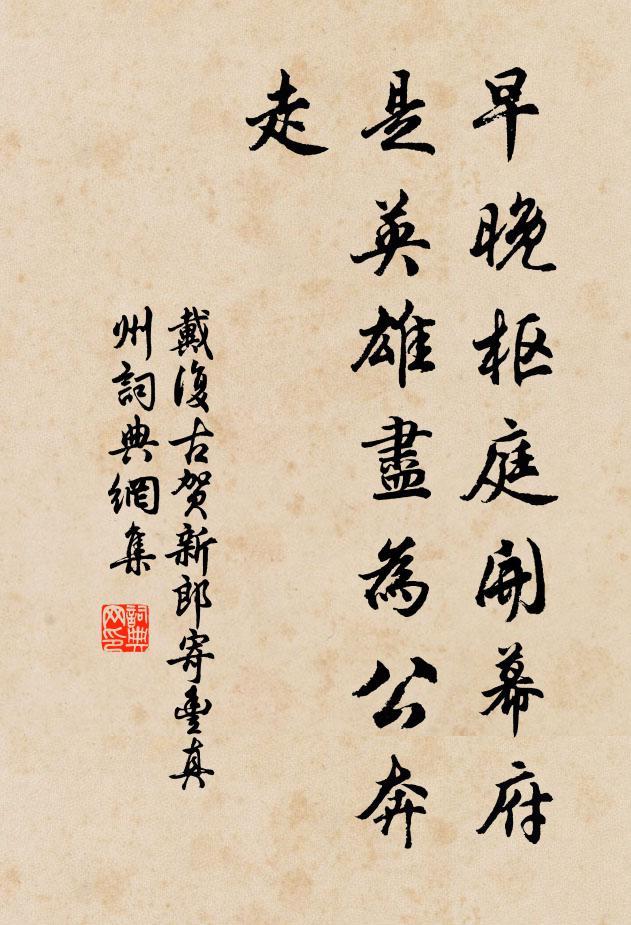 早晚枢庭開幕府
是英雄盡為公奔
走
戴復古贺新郎寄豐真
州詞典網集
詞典网印